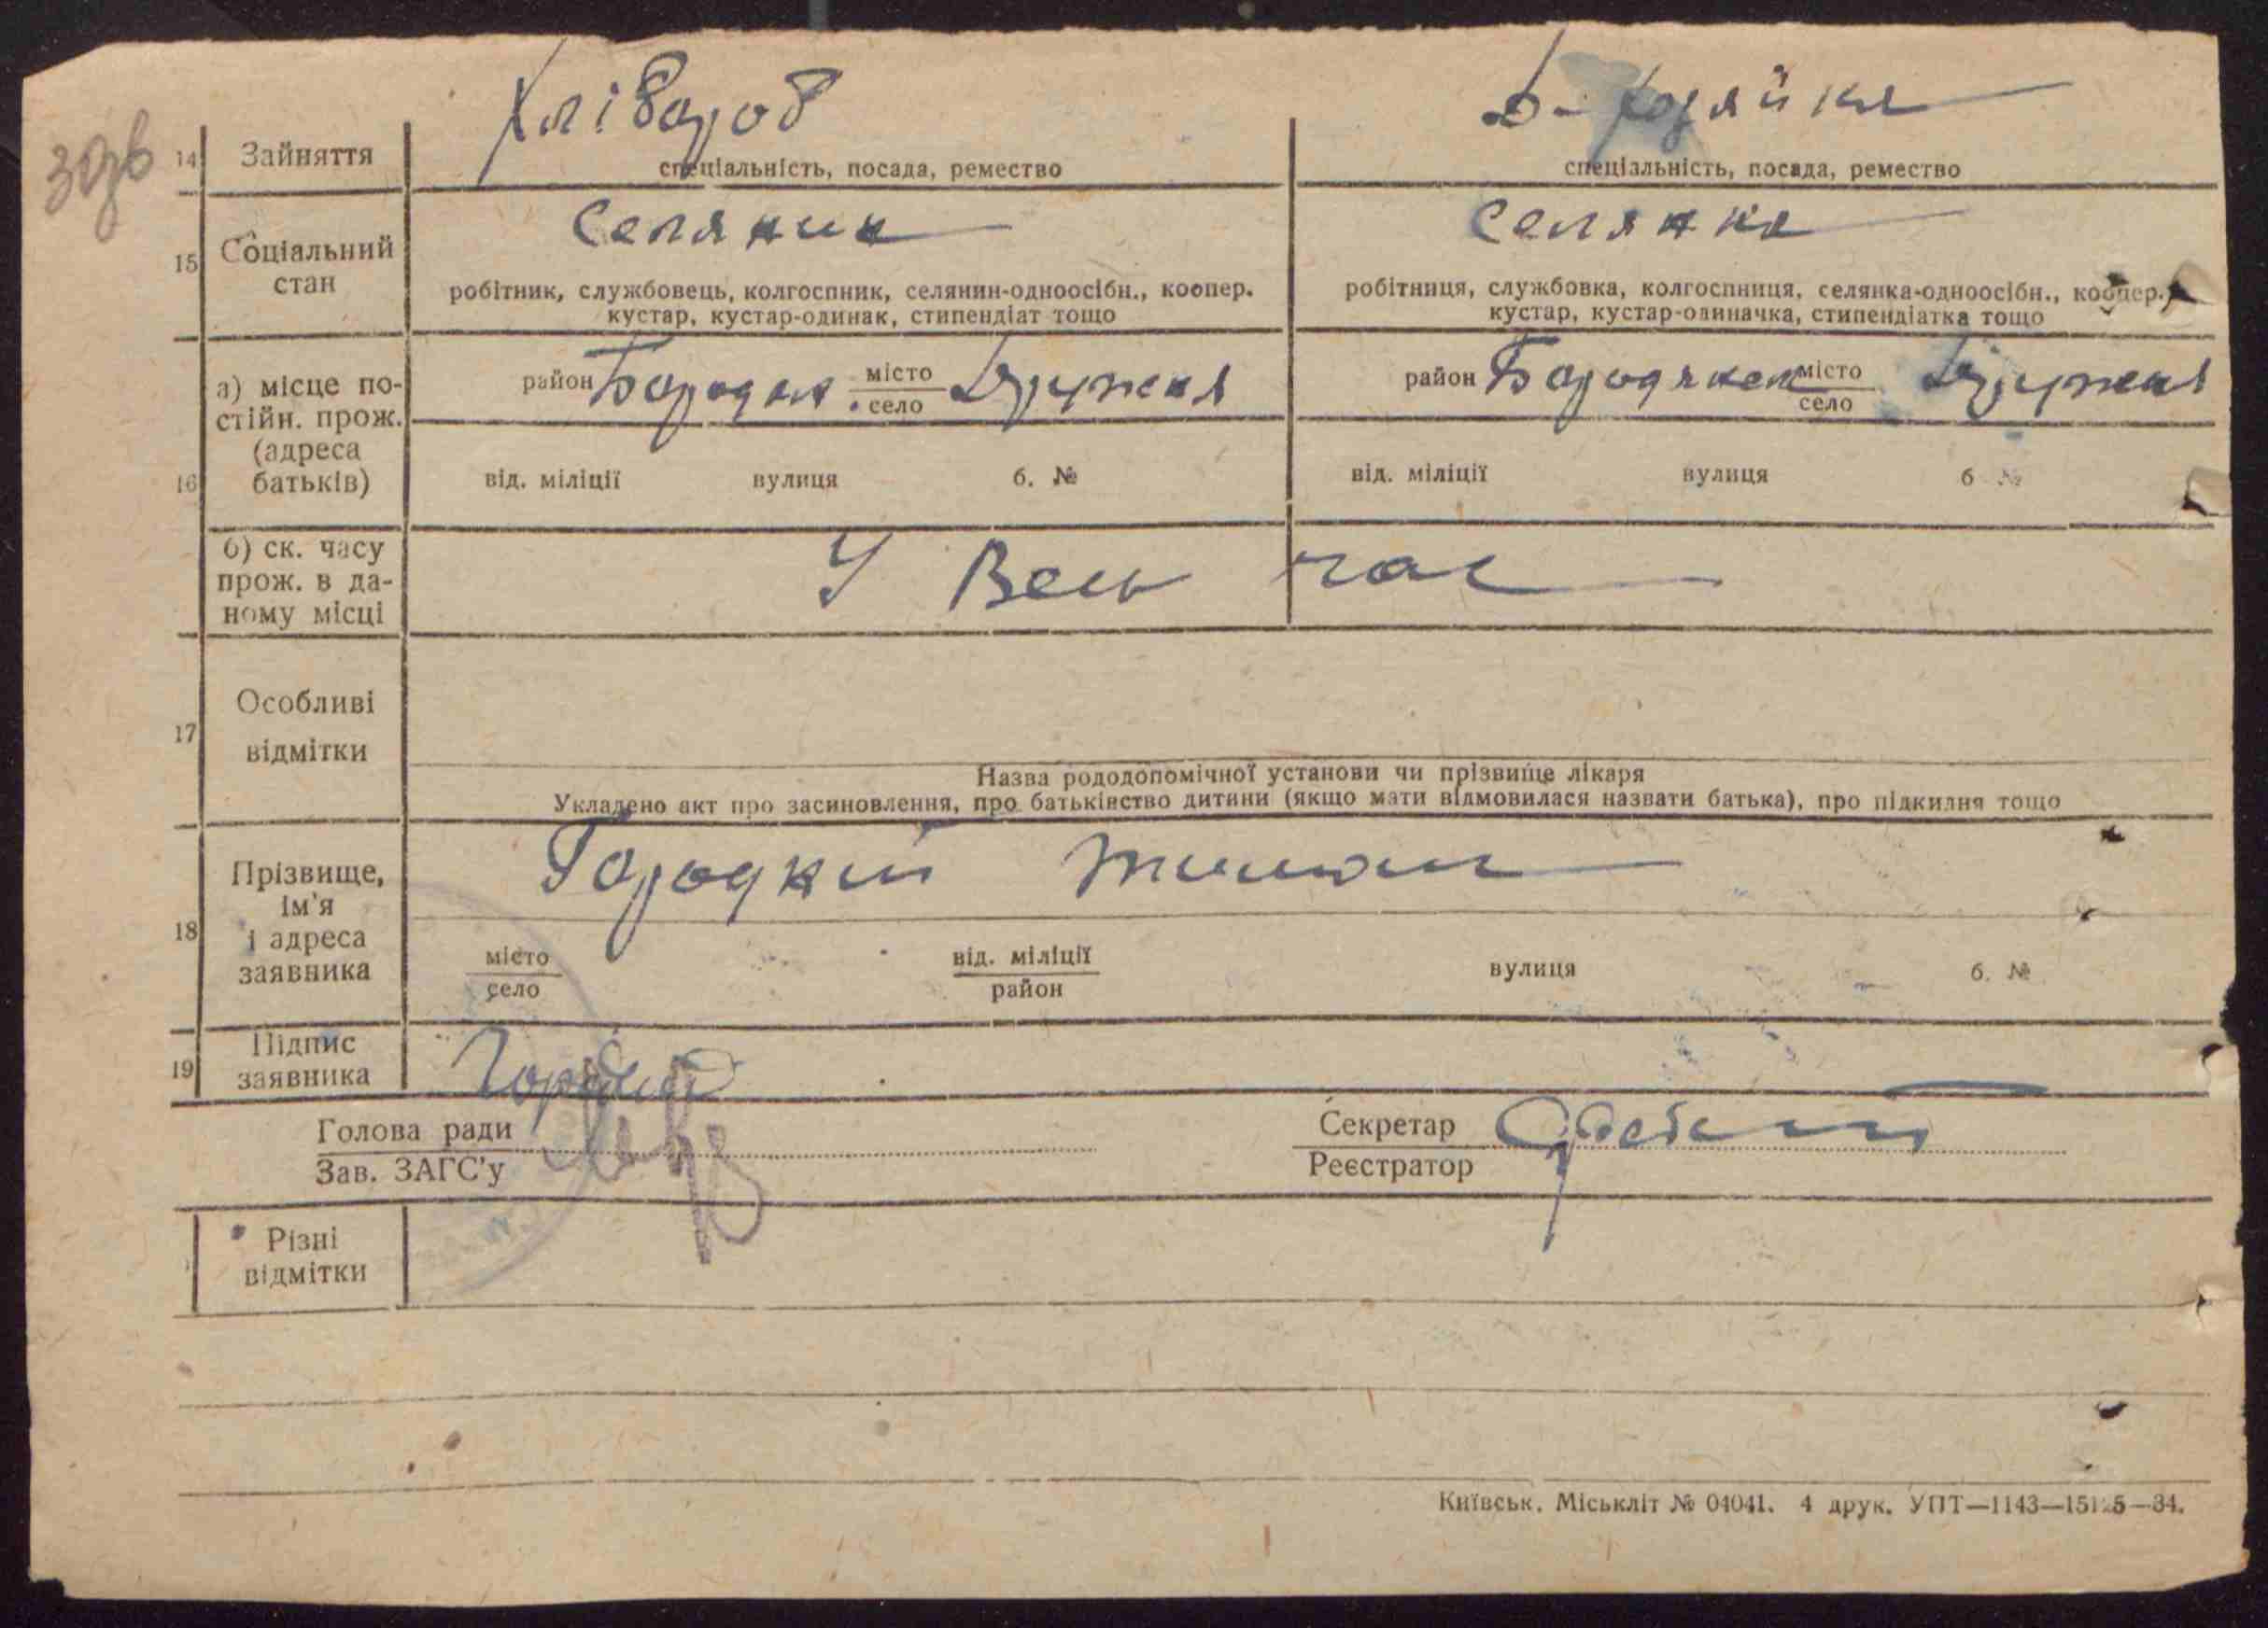 303в
14 Зайняття Хлібороб Д-хозяйка
спеціальність, посада, ремество спеціальність, посада, ремество
15 Соціальний стан Селянин Селянка
робітник, службовець, колгоспник, селянин-одноосібн., коопер. робітниця, службовка, колгоспниця, селянка-одноосібн., коопер.,
кустар, кустар-одинак, стипендіат тощо кустар, кустар-одиначка, стипендіатка тощо
16 а) місце постійн. прож. (адреса батьків)
район Бородян місто село Дружня район Бородянск місто село Дружня
від. міліції вулиця б. № від. міліції вулиця б №
б) ск. часу прож. в даному місці У Весь час
17 Особливі відмітки
Назва рододопомічної установи чи прізвище лікаря
Укладено акт про засиновлення, про батьківство дитини (якщо мати відмовилася назвати батька), про підкидня тощо
18 Прізвище, ім'я і адреса заявника
місто село від. міліції район вулиця б. №
19 Підпис заявника
Голова ради Секретар
Зав. ЗАГС'у Реєстратор
Різні відмітки
Київськ. Міськліт № 04041. 4 друк. УПТ—1143—15125—34.